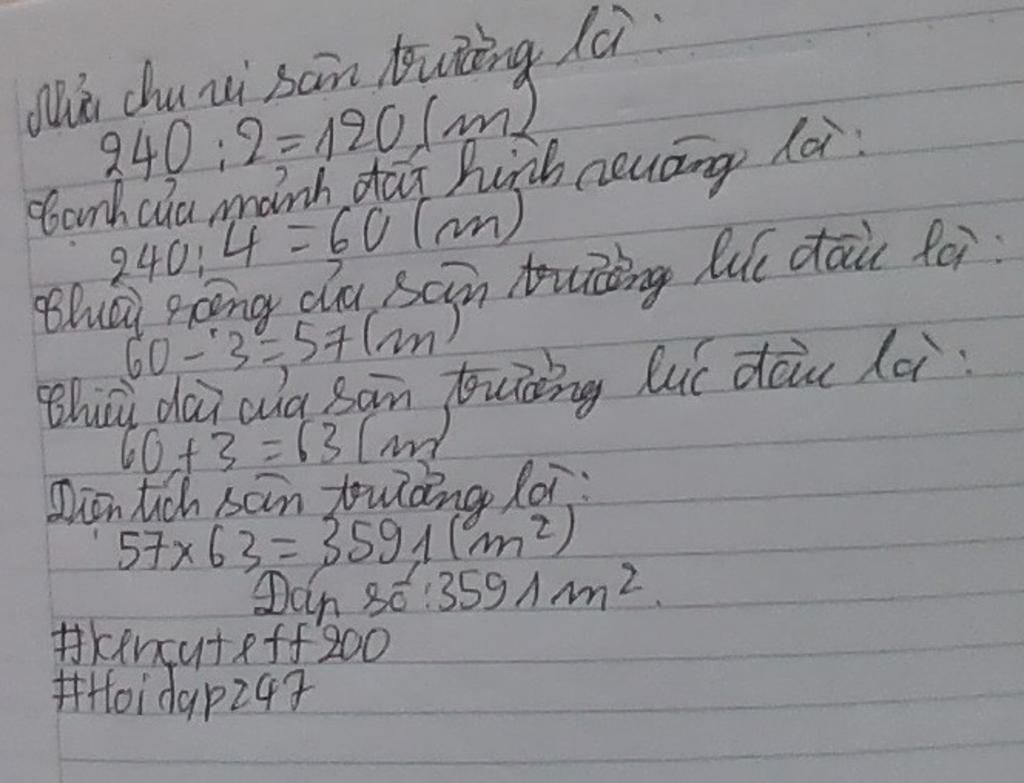 Nửa chu vi sân trường là:
240 : 2 = 120 (m)
Cạnh của mảnh đất hình vuông là:
240 : 4 = 60 (m)
Chiều rộng của sân trường lúc đầu là:
60 - 3 = 57 (m)
Chiều dài của sân trường lúc đầu là:
60 + 3 = 63 (m)
Diện tích sân trường là:
57 x 63 = 3591 (m²)
Đáp số: 3591 m².
#kencuteff200
#Hoidap247